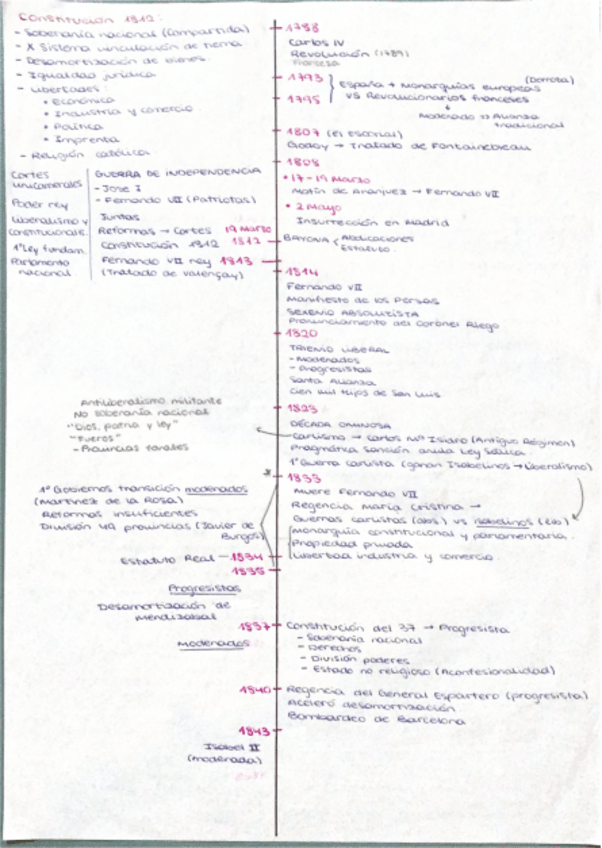 Constitución 1812:
- Soberanía nacional (Compartida)
- X Sistema vinculación de tierra
- Desamortización de bienes.
- Igualdad jurídica
- Libertades:
• Económica
• Industria y comercio
• Política
• Imprenta
- Religión católica
Cortes unicamerales
Poder rey
Liberalismo y constitucionale.
1ª Ley fundam.
Parlamento nacional
GUERRA DE INDEPENDENCIA
- Jose I
- Fernando VII (Patriotas)
Juntas
Reformas → Cortes 19 Marzo
Constitución 1812 1812
Fernando VII rey 1813
(Tratado de Valençay)
Antiliberalismo militante
No soberanía nacional
"Dios, patria y ley"
"Fueros"
- Provincias forales
1º Gobiernos transición moderados
(Martínez de la Rosa)
Reformas insuficientes
División 49 provincias (Javier de Burgos)
Estatuto Real - 1834
1835
Progresistas
Desamortización de Mendizábal
1837
Moderados
1840
1843
Isabel II
(moderada)
1788
Carlos IV
Revolución (1789)
francesa
1793
1795
España + Monarquías europeas (Derrota)
VS Revolucionarios franceses
Moderado Alianza tradicional
1807 (El Escorial)
Godoy → Tratado de Fontainebleau
1808
• 17-19 Marzo
Motín de Aranjuez → Fernando VII
• 2 Mayo
Insurrección en Madrid
BAYONA Abdicaciones
Estatuto.
1814
Fernando VII
Manifiesto de los Persas
SEXENIO ABSOLUTISTA
Pronunciamiento del Coronel Riego
1820
TRIENIO LIBERAL
- Moderados
- Progresistas
Santa Alianza
Cien mil Hijos de San Luis.
1823
DÉCADA OMINOSA
Carlismo → Carlos Mª Isidro (Antiguo Régimen)
Pragmática Sanción anula Ley Sálica.
1ª Guerra carlista (ganan Isabelinos → Liberalismo)
1833
Muere Fernando VII
Regencia María Cristina →
Guerras carlistas (abs) vs isabelinos (lib)
Monarquía constitucional y parlamentaria.
Propiedad privada
Libertad industria y comercio.
Constitución del 37 → Progresista
- Soberanía nacional
- Derechos
- División poderes
- Estado no religioso (Aconfesionalidad)
Regencia del General Espartero (progresista)
Aceleró desamortización.
Bombardeo de Barcelona